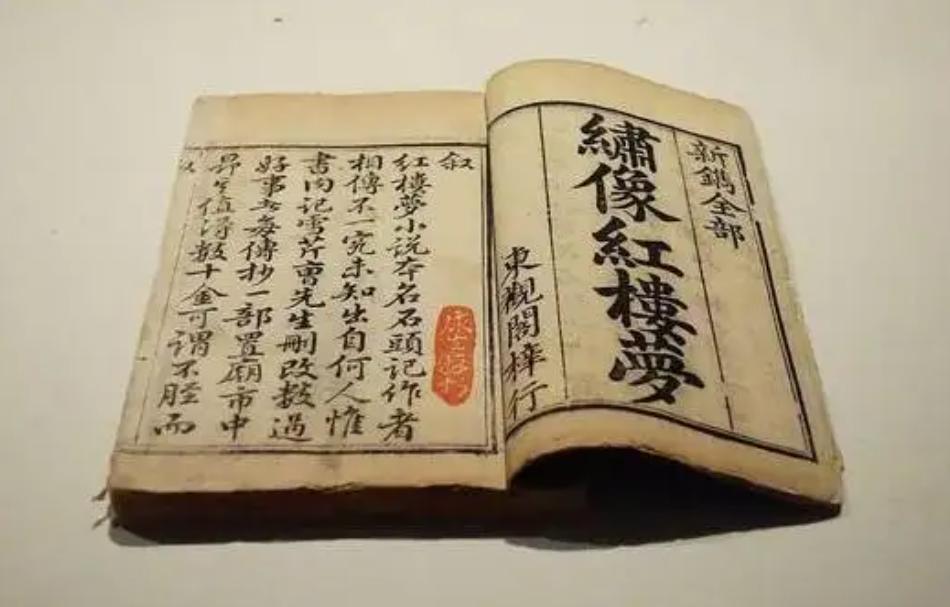 新鐫全部
繡像紅樓夢
東觀閣梓行
叙
紅樓夢小説本名石頭記作者
相傳不一究未知出自何人惟
書内記雪芹曹先生刪改数過
好事者每傳抄一部置廟市中
昂其值得数十金可謂不脛而